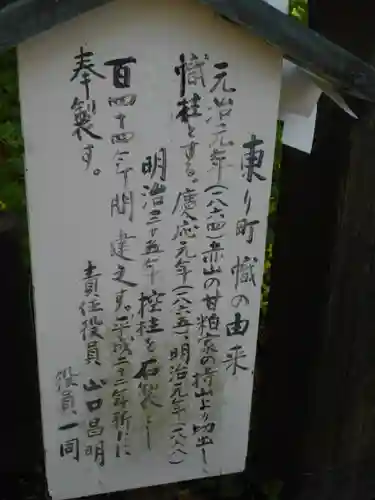 東り町幟の由来
元治元年(一八六四)赤山の甘粕家の持山より切出し
幟柱とする。慶応元年(一八六五)、明治元年(一八六八)
明治三十五年控柱を石製とし
百四十四年間建之す。平成二十二年新たに
奉製す。
責任役員 山口昌明
役員一同